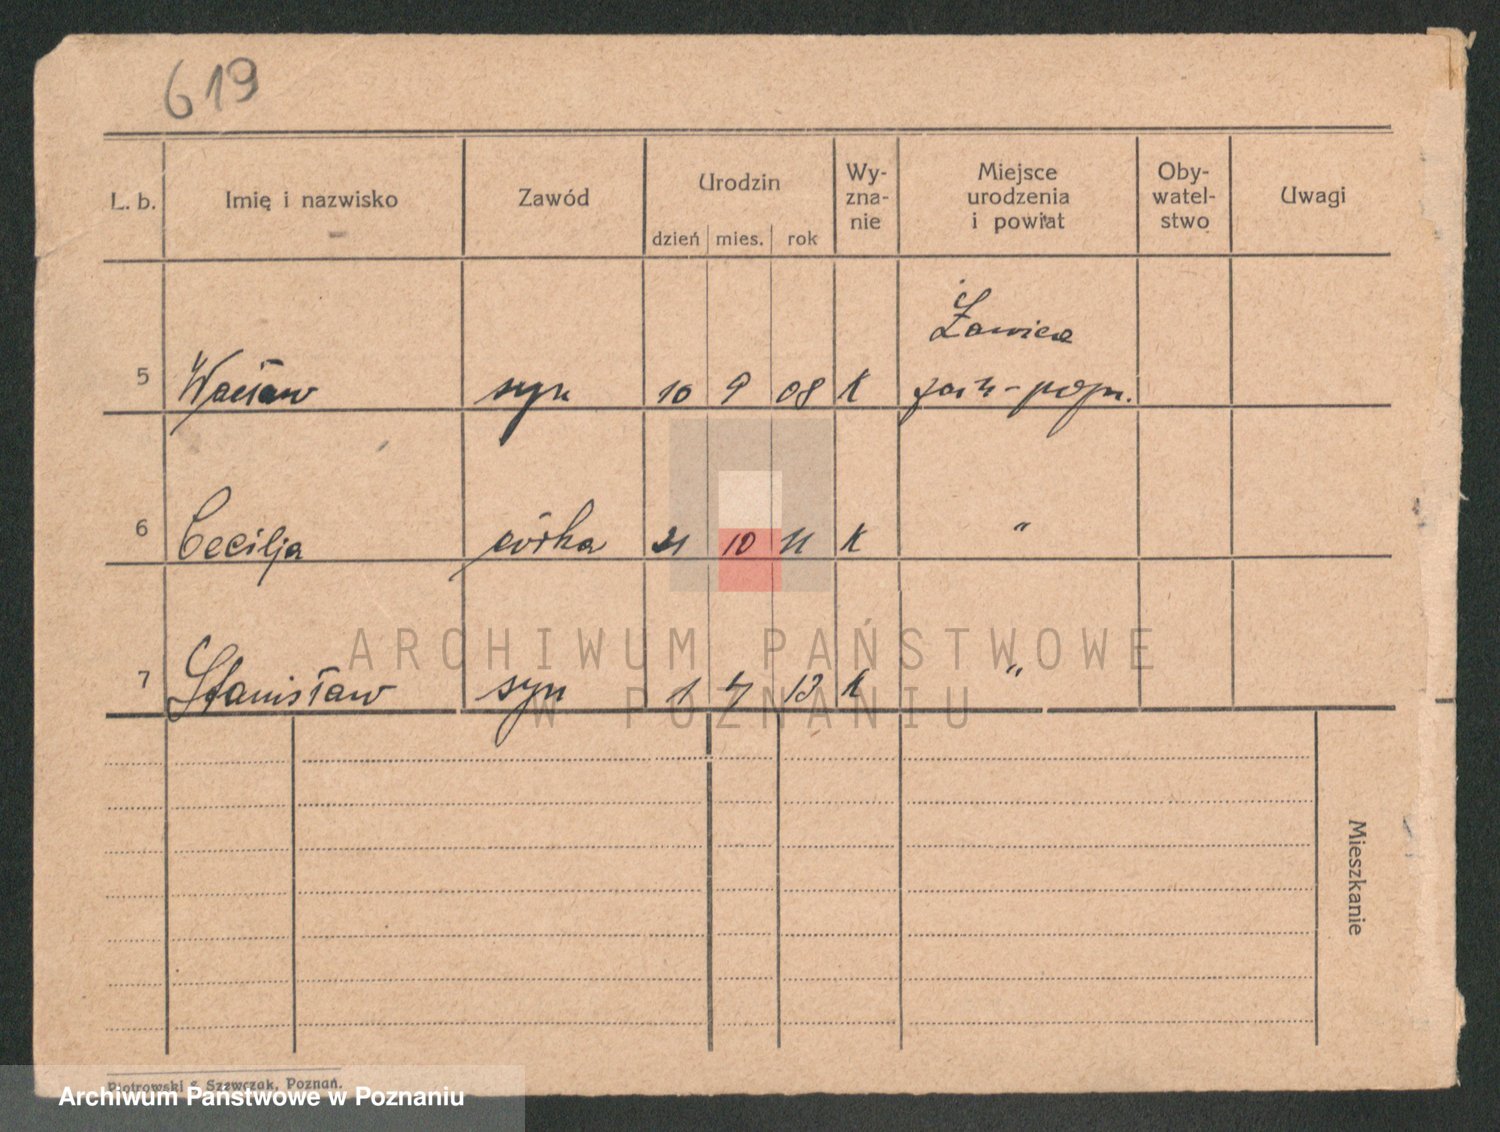 619
L. b. Imię i nazwisko Zawód Urodzin dzień mies. rok Wy-zna-nie Miejsce urodzenia i powiat Oby-watel-stwo Uwagi
Ławica
5 Wacław syn 10 9 08 K zach-pozn.
6 Cecilja córka 21 10 11 K "
7 Stanisław syn 1 4 13 K "
ARCHIWUM PAŃSTWOWE
W POZNANIU
Mieszkanie
Piotrowski i Szewczak, Poznań.
Archiwum Państwowe w Poznaniu